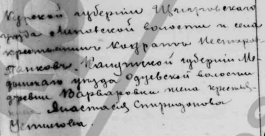 Курской губернiи Щигровского
уезда Липовской волости и села
крестьянинъ Кондратъ Нестеров
Панковъ. Калужской губернiи Ме-
дынскаго уезда Одуевской волости
деревни Варваровки жена крестья
Анастасiя Спиридонова